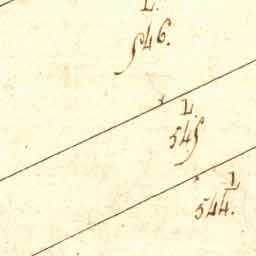 L.
546.
L.
545
L
544.